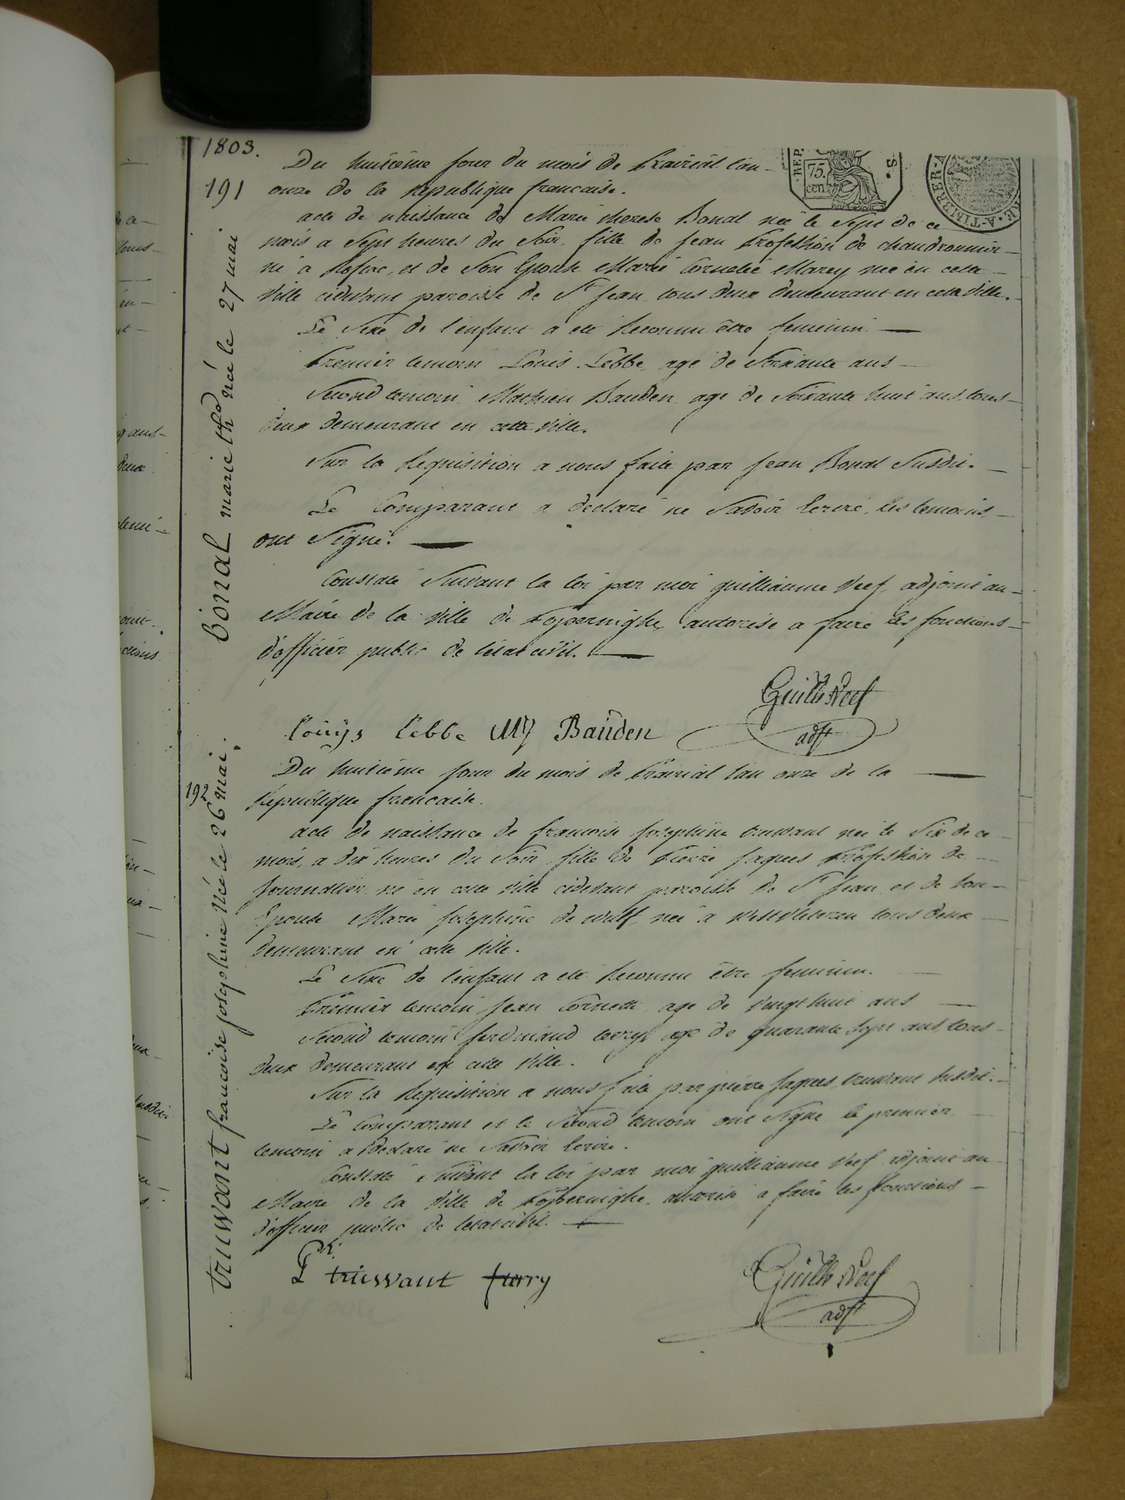 1803.
191
Du huitième jour du mois de Prairial l'an
onze de la Republique française.
acte de naissance de Marie therese Bonal neé le Sept de ce
mois a Sept heures du Soir fille de Jean Profession de chaudronnier
né a et de Son Epouse Marie Cornelie Marey neé en cette
Ville cidevant paroisse de St Jean tous deux demeurant en cette Ville.
Le Sexe de l'enfant a eté Reconnu être feminin
Premier temoin Louis Lebbe agé de Soixante ans
Second temoin Mathieu Bauden agé de Soixante huit ans tous
deux demeurant en cette Ville.
Sur la Requisition a nous faite par Jean Bonal Susdit.
Le Comparant a declaré ne Savoir ecrire, les temoins
ont Signé.
Constaté Suivant la loi par moi guilliaume Neef adjoint au
Maire de la Ville de Poperinghe autorisé a faire les fonctions
d'officier public de l'etat civil.
Guille Neef
adjt
louijs lebbe MJ Bauden
Bonal marie thd née le 27 mai
192
Du huitième jour du mois de Prairial l'an onze de la
Republique francaise.
acte de naissance de francoise Josephine truwant neé le Six de ce
mois, a dix heures du Soir fille de Pierre Jaques Profession de
Journallier né en cette Ville cidevant paroisse de St Jean et de Son
Epouse Marie Josephine de wulf neé a Westvleteren tous deux
demeurant en cette Ville.
Le Sexe de l'enfant a eté Reconnu être feminin.
Premier temoin Jean Cornette agé de Vingt huit ans
Second temoin ferdinand agé de quarante Sept ans tous
deux demeurant en cette Ville.
Sur la Requisition a nous faite par pierre Jaques truwant Susdit.
Le Comparant et le Second temoin ont Signé le premier
temoin a Declaré ne Savoir ecrire.
Constaté Suivant la loi par moi guilliaume Neef adjoint au
Maire de la Ville de Poperinghe autorisé a faire les fonctions
d'officier public de l'etat civil.
truwant
Guille Neef
adjt
truwant francoise josephine née le 26 mai.
75.
cen